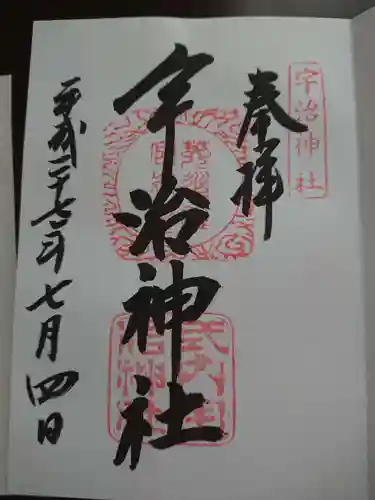 宇治神社
奉拝
宇治神社
平成二十七年七月四日